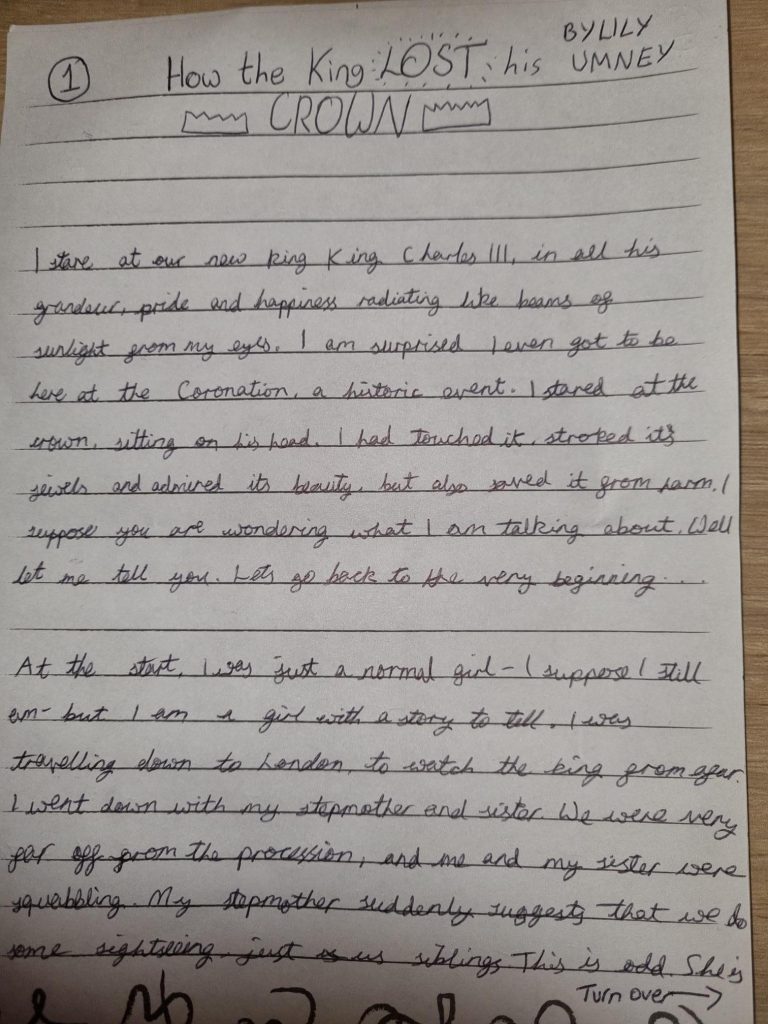 1 How the King LOST his BY LILY UMNEY
CROWN
I stare at our new king King Charles III, in all his
grandeur, pride and happiness radiating like beams of
sunlight from my eyes. I am surprised I even got to be
here at the Coronation, a historic event. I stared at the
crown, sitting on his head. I had touched it, stroked it's
jewels and admired its beauty, but also saved it from harm. I
suppose you are wondering what I am talking about. Well
let me tell you. Lets go back to the very beginning...
At the start, I was just a normal girl - I suppose I still
am - but I am a girl with a story to tell. I was
travelling down to London, to watch the king from afar.
I went down with my stepmother and sister. We were very
far off from the procession, and me and my sister were
squabbling. My stepmother suddenly suggests that we do
some sightseeing just us siblings. This is odd. She is
Turn over →